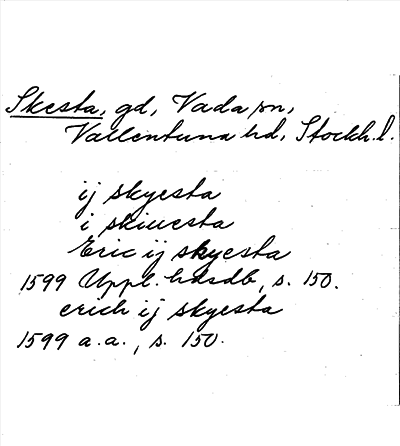 Skesta, gd, Vada sn,
Vallentuna hd, Stockh. l.
ij skyesta
i skiuesta
Eric ij skyesta
1599 Uppl. hdsdb, s. 150.
erich ij skyesta
1599 a.a., s. 150.